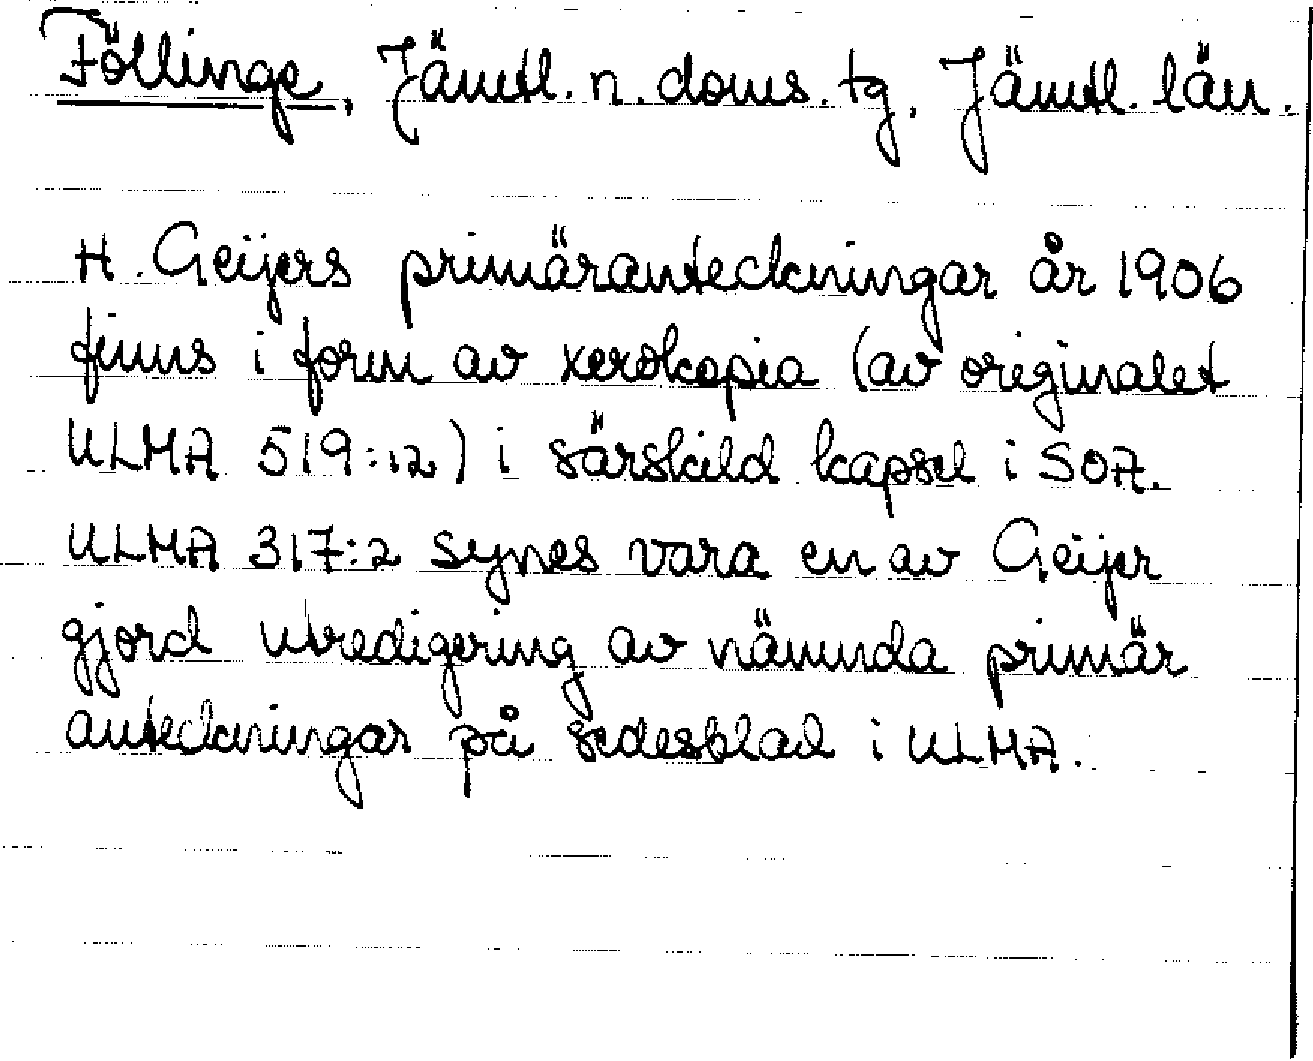 Föllinge, Jämtl. n. doms. tg. Jämtl. län.
H. Geijers primäranteckningar år 1906
finns i form av xeroxkopia (av originalet
ULMA 519:12) i särskild kapsel i SOA.
ULMA 317:2 synes vara en av Geijer
gjord utredigering av nämnda primär
anteckningar på sedesblad i ULMA.